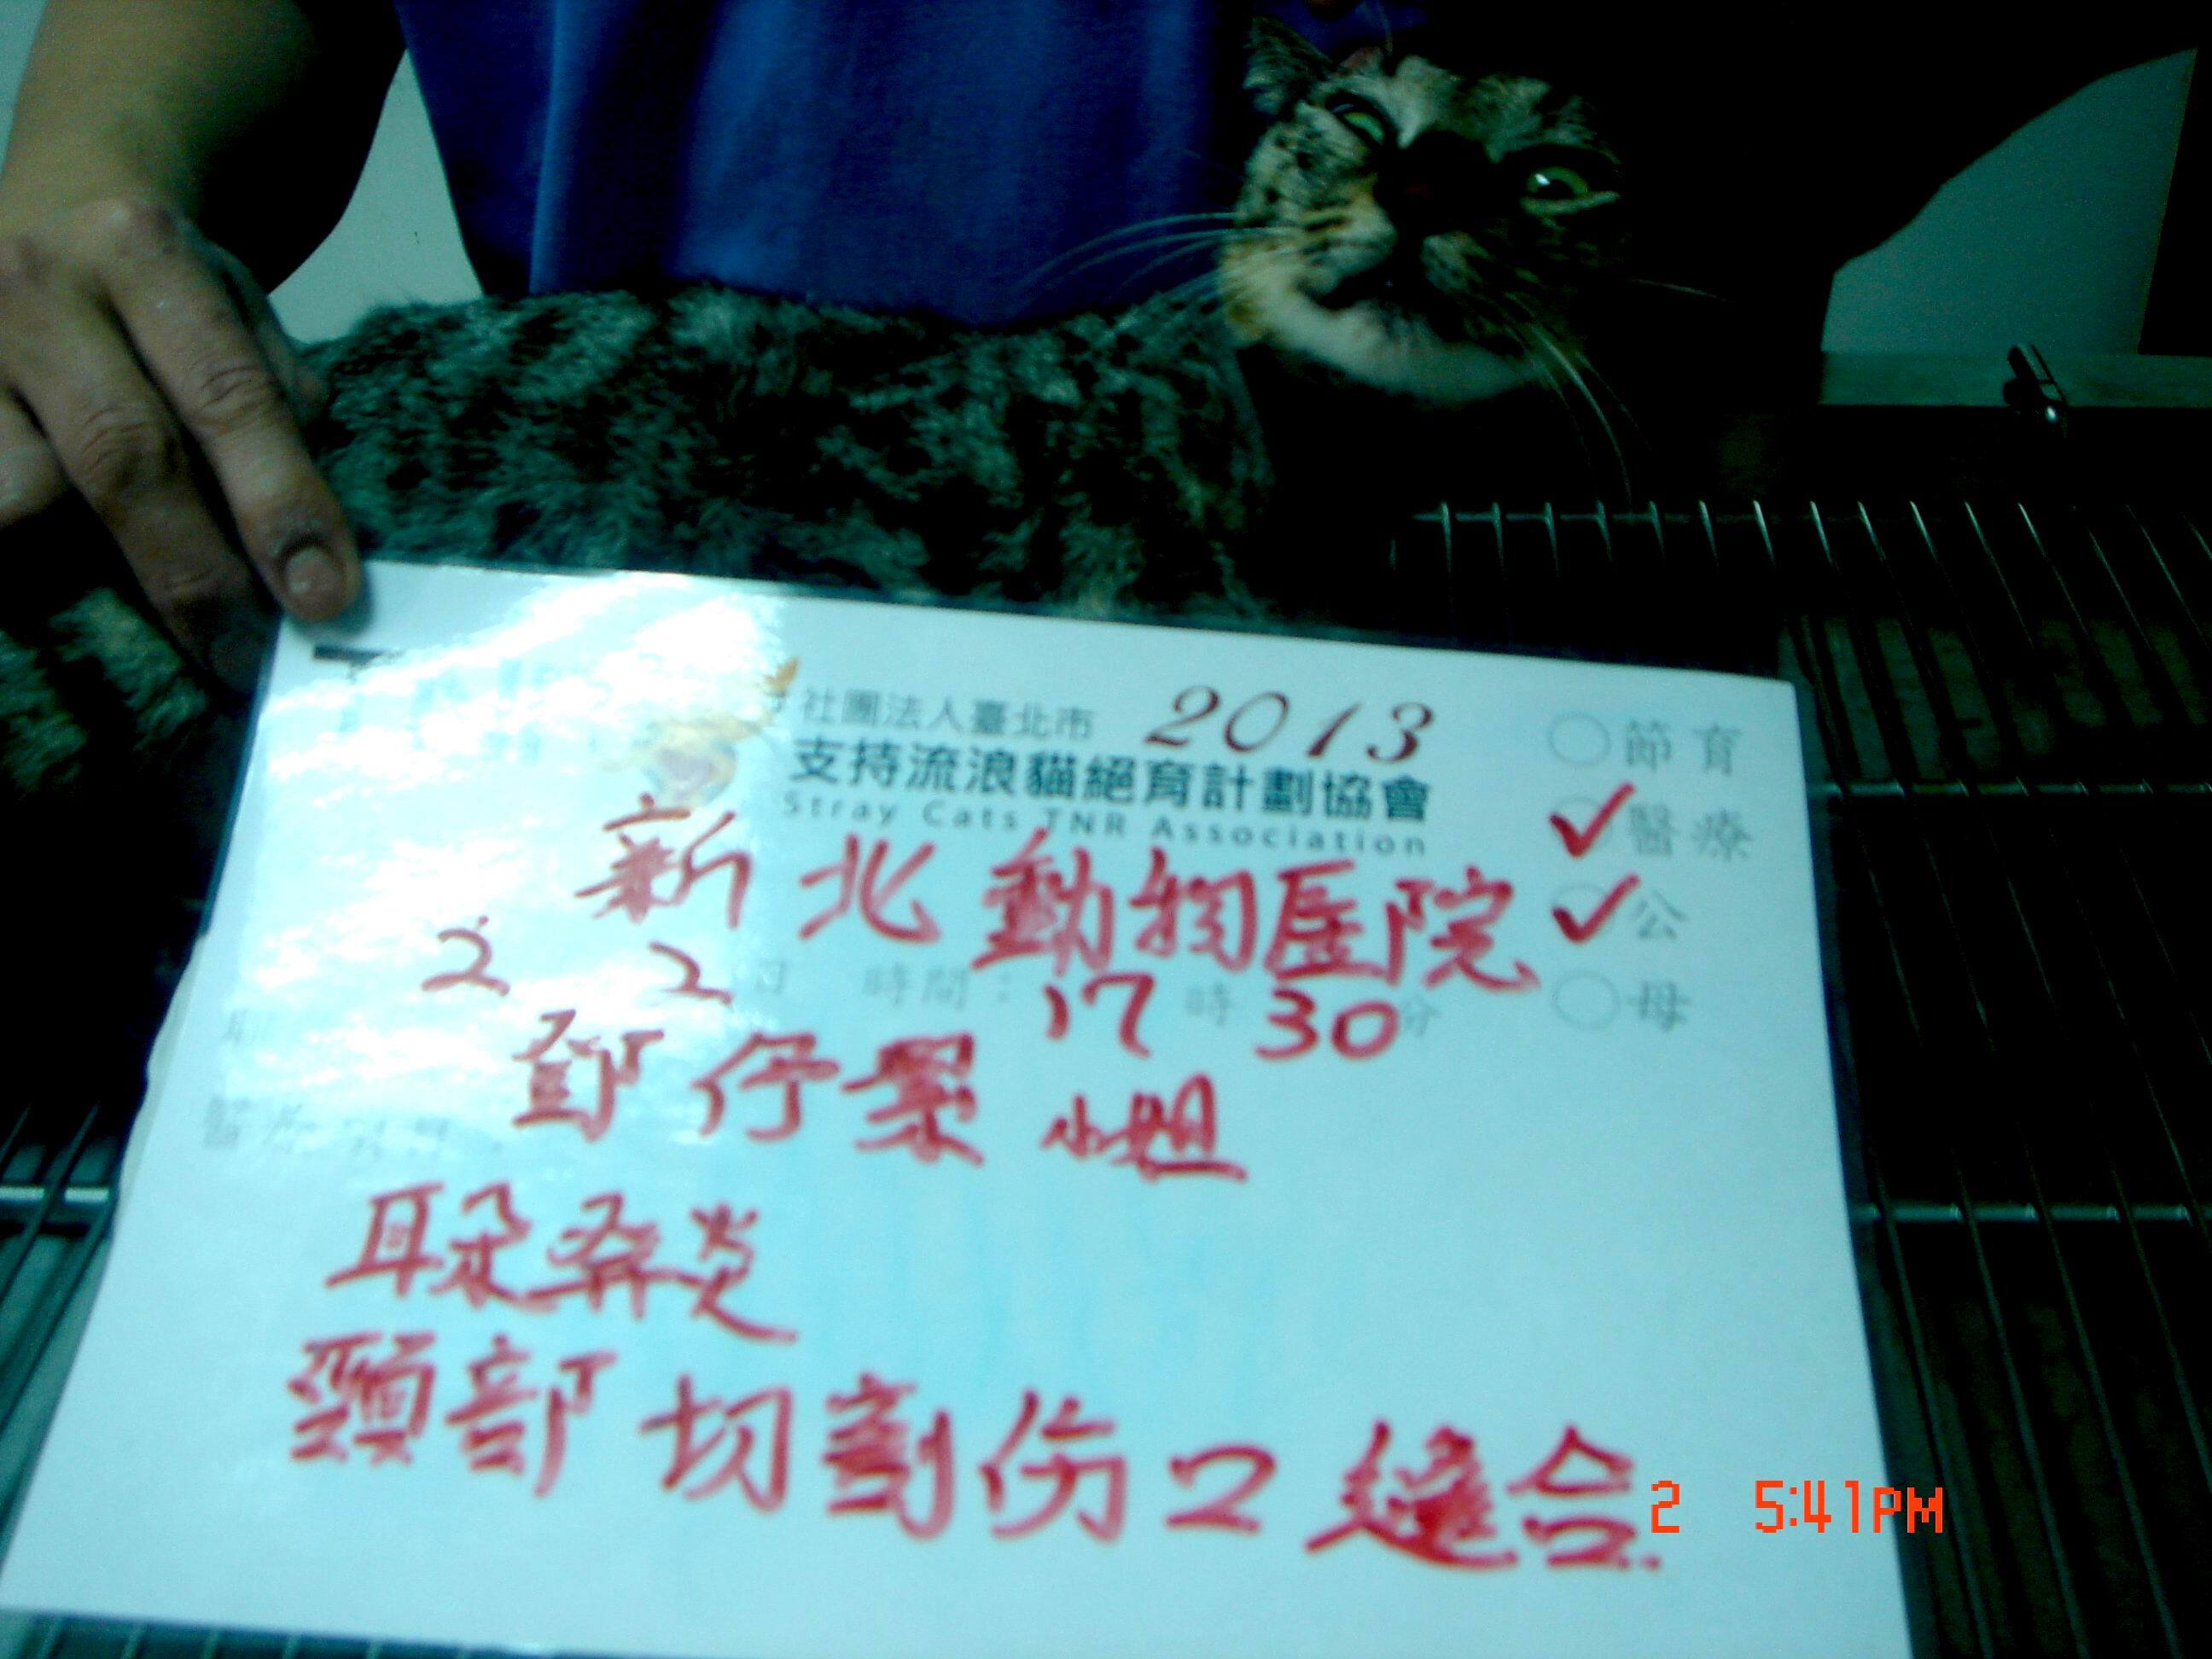 社團法人臺北市 2013
支持流浪貓絕育計劃協會
Stray Cats TNR Association
節育
醫療
公
母
新北動物医院
2 2 日 時間: 17 時 30 分
鄧伃 小姐
耳朵 炎
頸部切割伤口縫合
2 5:41PM